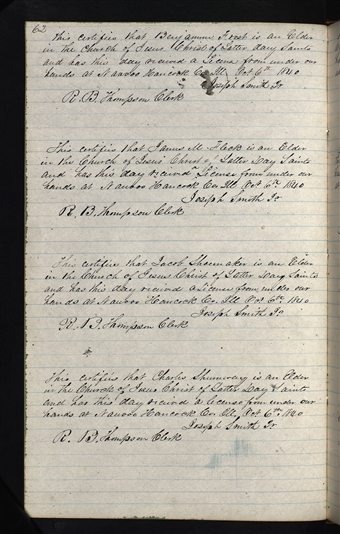 62
This certifies that Benjamin Frost is an Elder
in the Church of Jesus Christ of Latter day Saints
and has this day received a License from under our
hands at Nauvoo Hancock Co. Ill. Oct 6th 1840
Joseph Smith Jr
R. B. Thompson Clerk
This certifies that James M. Flack is an Elder
in the Church of Jesus Christ of Latter Day Saints
and has this day received a License from under our
hands at Nauvoo Hancock Co. Ill. Oct 6th 1840
Joseph Smith Jr
R. B. Thompson Clerk
This certifies that Jacob Shoemaker is an Elder
in the Church of Jesus Christ of Latter Day Saints
and has this day received a License from under our
hands at Nauvoo Hancock Co. Ill Oct 6th 1840
Joseph Smith Jr
R. B. Thompson Clerk
This certifies that Charles Shumway is an Elder
in the Church of Jesus Christ of Latter Day Saints
and has this day received a License from under our
hands at Nauvoo Hancock Co. Ill, Oct 6th 1840
Joseph Smith Jr
R. B. Thompson Clerk